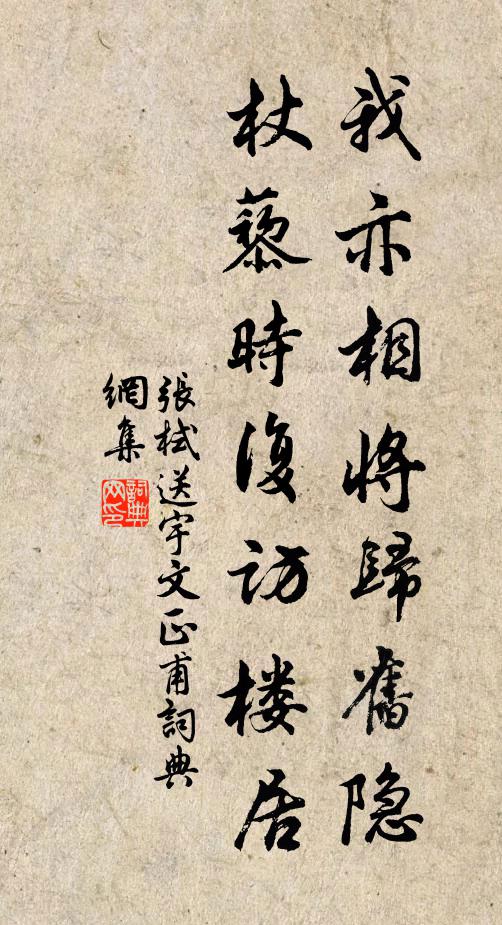 我亦相将歸舊隐
杖藜時復访楼居
張栻送宇文正甫詞典
網集
詞典
网印